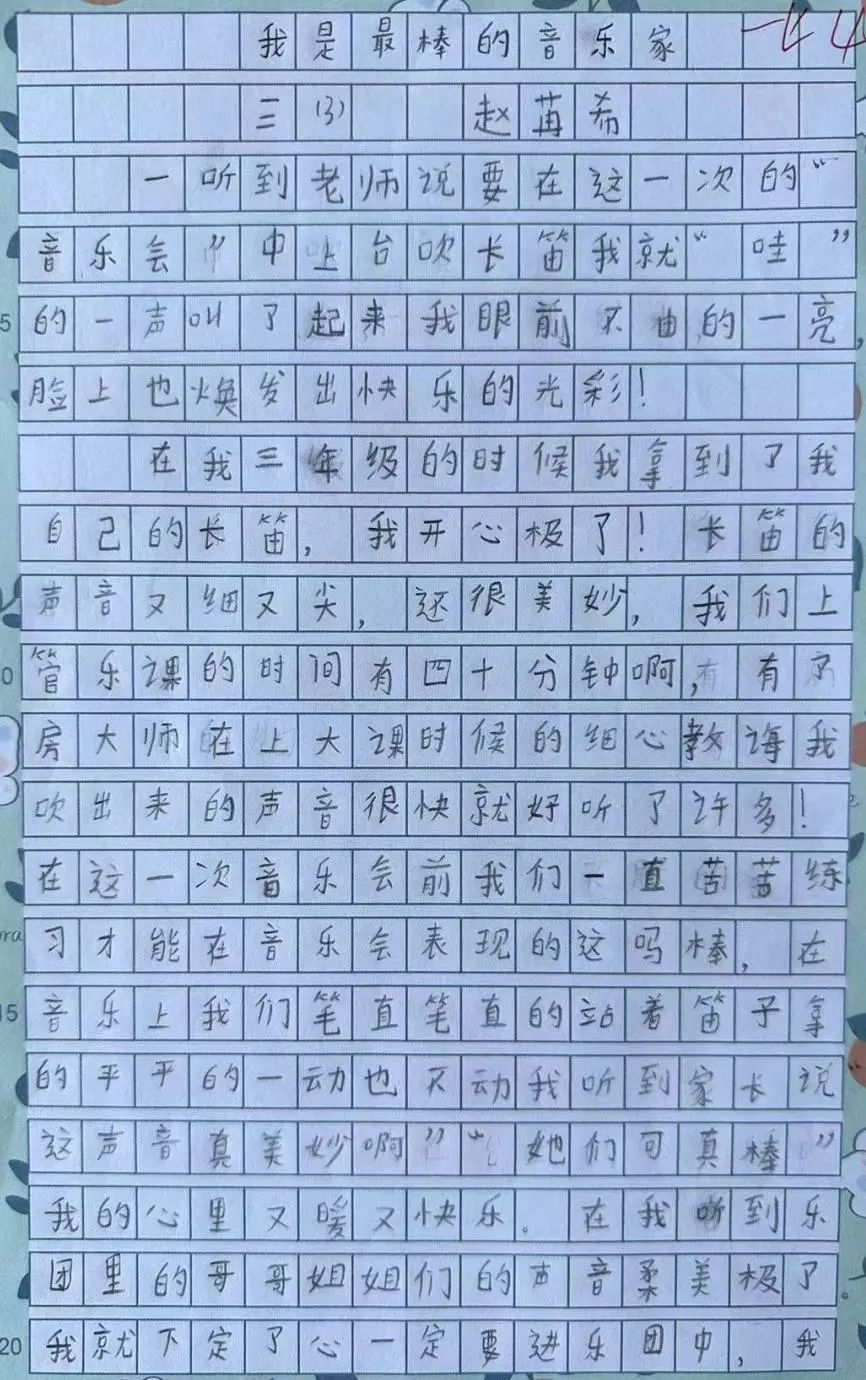 我是最棒的音乐家
三(3) 赵苒希
一听到老师说要在这一次的“
音乐会”中上台吹长笛我就“哇”
的一声叫了起来我眼前不由的一亮,
脸上也焕发出快乐的光彩!
在我三年级的时候我拿到了我
自己的长笛,我开心极了!长笛的
声音又细又尖,还很美妙,我们上
管乐课的时间有四十分钟啊,有了
房大师在上大课时候的细心教诲我
吹出来的声音很快就好听了许多!
在这一次音乐会前我们一直苦苦练
习才能在音乐会表现的这吗棒,在
音乐上我们笔直笔直的站着笛子拿
的平平的一动也不动我听到家长说
这声音真美妙啊”“她们可真棒”
我的心里又暖又快乐。在我听到乐
团里的哥哥姐姐们的声音柔美极了。
我就下定了心一定要进乐团中,我